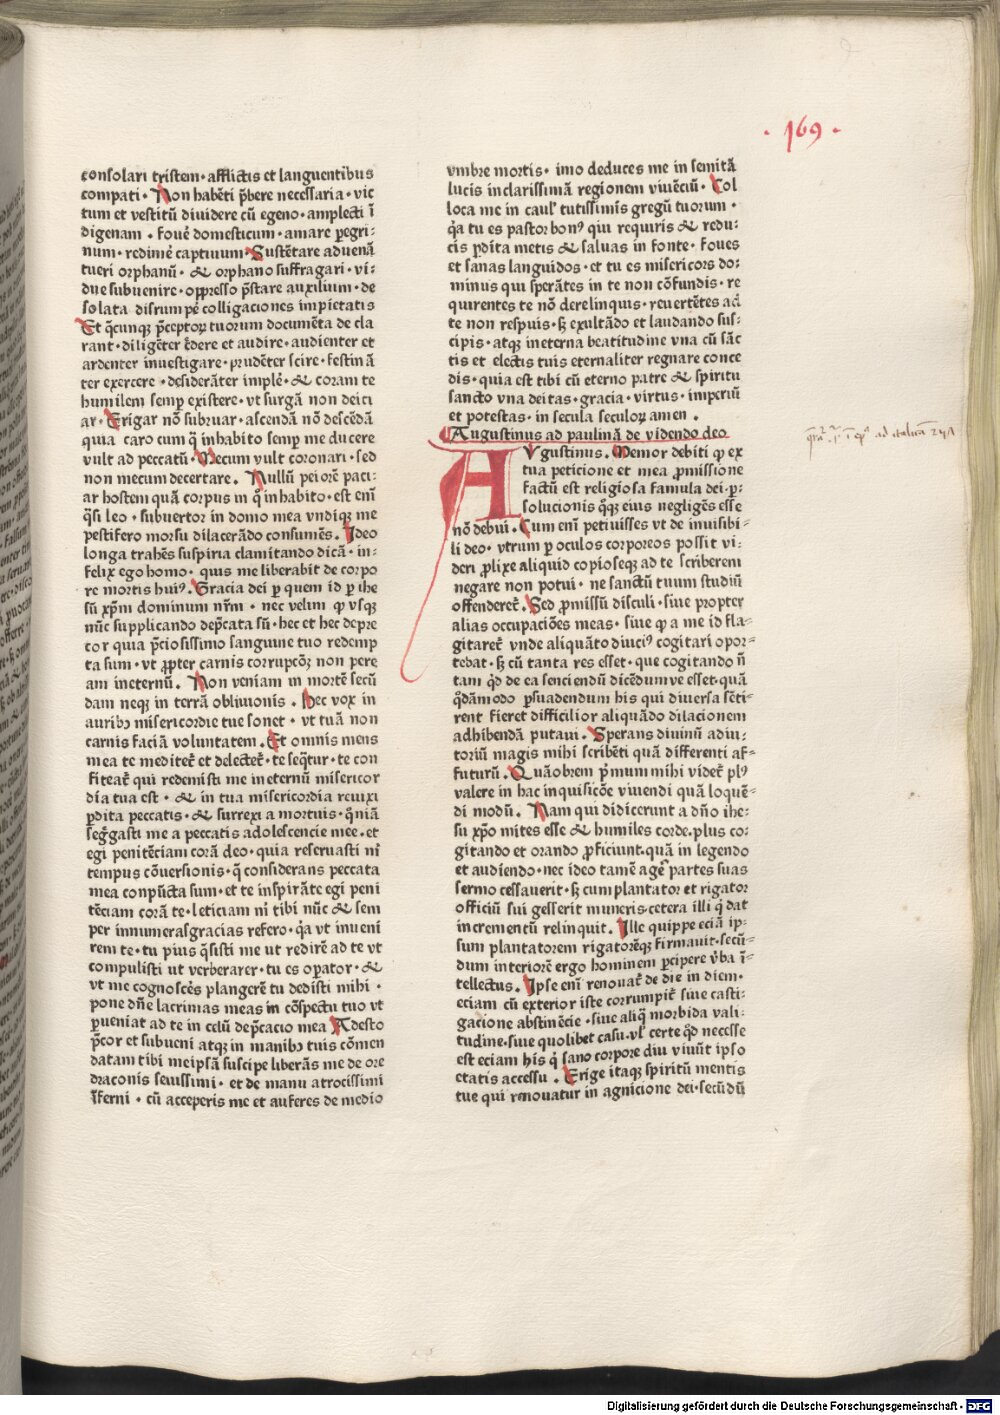 · 169 ·
consolari tristem · afflictis et languentibus
compati · Non habēti p̄bere necessaria · vic
tum et vestitū diuidere cū egeno · amplecti ī
digenam · fouē domesticum · amare ꝑegri⸗
num · redimē captiuum · Sustētare aduenā
tueri orphanū · & orphano suffragari · vi⸗
due subuenire · oppresso p̄stare auxilium · de
solata disrumpē colligaciones impietatis
Et q̄cunqꝫ p̄ceptoꝝ tuorum documēta de cla
rant · diligēter c̄dere et audire · audienter et
ardenter inuestigare · prudēter scire · festinā
ter exercere · desiderāter implē · & coram te
humilem semꝑ existere · vt surgā non deici
ar · Erigar nō subruar · ascendā nō descēdā
quia caro cum q̄ inhabito semꝑ me ducere
vult ad peccatū · Mecum vult coronari · sed
non mecum decertare · Nullū peiorē paci⸗
ar hostem quā corpus in q̄ inhabito · est enī
q̄si leo · subuertor in domo mea vndiqꝫ me
pestifero morsu dilacerādo consumēs · Ideo
longa trahēs suspiria clamitando dicā · in⸗
felix ego homo · quis me liberabit de corpo
re mortis huiꝰ · Gracia dei ꝑ quem id ꝑ ihe
sū xp̄m dominum nr̄m · nec velim ꝙ vsqꝫ
nūc supplicando dep̄cata sū · hec et hec depre
cor quia p̄ciosissimo sanguine tuo redemp
ta sum · vt ꝓpter carnis corrupcōꝫ non pere
am ineternū · Non veniam in mortē secū
dam neqꝫ in terrā obliuionis · Hec vox in
auribꝫ misericordie tue sonet · vt tuā non
carnis faciā voluntatem · Et omnis mens
mea te meditet᷑ et delectet᷑ · te seq̄tur · te con
fiteat᷑ qui redemisti me ineternū misericor
dia tua est · & in tua misericordia reuixi
ꝑdita peccatis · & surrexi a mortuis · q̄niā
seg̃gasti me a peccatis adolescencie mee · et
egi penitēciam corā deo · quia reseruasti mī
tempus cōuersionis · q̄ considerans peccata
mea conpūcta sum · et te inspirāte egi peni
tēciam corā te · leticiam mī tibi nūc & sem
per innumeras gracias refero · q̄a vt inueni
rem te · tu pius q̄sisti me ut redirē ad te vt
compulisti ut verberarer · tu es oꝑator · &
vt me cognoscēs plangerē tu dedisti mihi ·
pone dn̄e lacrimas meas in cōspectu tuo vt
ꝑueniat ad te in celū dep̄cacio mea Adesto
p̄cor et subueni atqꝫ in manibꝫ tuis cōmen
datam tibi meipsā suscipe liberās me de ore
draconis seuissimi · et de manu atrocissimi
īferni · cū acceperis me et auferes de medio
vmbre mortis · imo deduces me in semitā
lucis in clarissimā regionem viuēciū · Col
loca me in caulꝭ tutissimis gregū tuorum ·
q̄a tu es pastor bonꝰ qui requiris & redu⸗
cis ꝑdita metis & saluas in fonte · foues
et sanas languidos · et tu es misericors do⸗
minus qui sperātes in te non cōfundis · re
quirentes te nō derelinquis · reuertētes ad
te non respuis · sꝫ exultādo et laudando sus⸗
cipis · atqꝫ ineterna beatitudine vna cū sāc
tis et electis tuis eternaliter regnare conce
dis · quia est tibi cū eterno patre & spiritu
sancto vna deitas · gracia · virtus · imperiū
et potestas · in secula seculoꝝ amen ·
Augustinus ad paulinā de videndo deo
AVgustinus · Memor debiti ꝙ ex
tua peticione et mea ꝓmissione
factū est religiosa famula dei · ꝑ⸗
solucionis q̄qꝫ eius negligēs esse
nō debui · Cum enī petiuisses vt de inuisibi⸗
li deo · vtrum ꝑ oculos corporeos possit vi⸗
deri ꝓlixe aliquid copioseqꝫ ad te scriberem
negare non potui · ne sanctū tuum studiū
offenderet᷑ · Sed ꝓmissū disculi · siue propter
alias occupaciōes meas · siue ꝙ a me id fla⸗
gitaret᷑ vnde aliquāto diuciꝰ cogitari opor⸗
tebat · sꝫ cū tanta res esset · que cogitando n̄
tam q̄d de ea senciendū dicēdumve esset · quā
q̄dāmodo ꝑsuadendum his qui diuersa sēti⸗
rent fieret difficilior aliquādo dilacionem
adhibendā putaui · Sperans diuinū adiu⸗
toriū magis mihi scribēti quā differenti af⸗
futurū · Quāobrem p̄mum mihi videt᷑ plꝰ
valere in hac inquisicōe viuendi quā loquē⸗
di modū · Nam qui didicerunt a dn̄o ihe⸗
su xp̄o mites esse & humiles corde · plus co⸗
gitando et orando ꝓficiunt · quā in legendo
et audiendo · nec ideo tamē agēꝰ partes suas
sermo cessauerit · sꝫ cum plantator et rigator
officiū sui gesserit muneris · cetera illi q̄ dat
incrementū relinquit · Ille quippe eciā ip⸗
sum plantatorem rigatorēqꝫ firmauit · secū⸗
dum interiorē ergo hominem ꝑcipere v̄ba ī⸗
tellectus · Ipse enī renouat᷑ de die in diem ·
eciam cū exterior iste corrumpit᷑ siue casti⸗
gacione abstinēcie · siue aliq̄ morbida vali⸗
tudine · siue quolibet casu · vlꝭ certe q̄d necesse
est eciam his q̄ sano corpore diu viuūt ipso
etatis accessu · Erige itaqꝫ spiritū mentis
tue qui renouatur in agnicione dei · secūdū
Digitalisierung gefördert durch die Deutsche Forschungsgemeinschaft - DFG